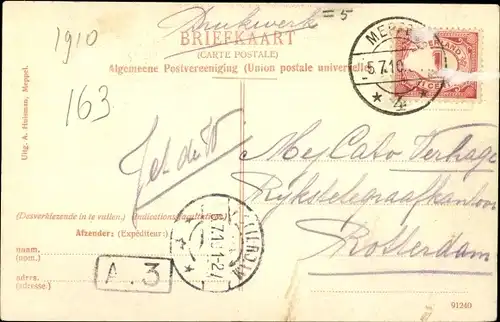 Drukwerk = 5
1910
BRIEFKAART
(CARTE POSTALE)
Algemeene Postvereeniging (Union postale universelle)
MEPPEL
5.7.10
4
NEDERLAND
1
163
Uitg. A. Huisman, Meppel.
Jet de W
Mej Cato Verhage
Rijkstelegraafkantoor
Rotterdam
(Desverkiezende in te vullen.) (Indications facultatives)
Afzender: (Expéditeur:)
naam.
(nom.)
adres.
(adresse:)
A. 3
91240